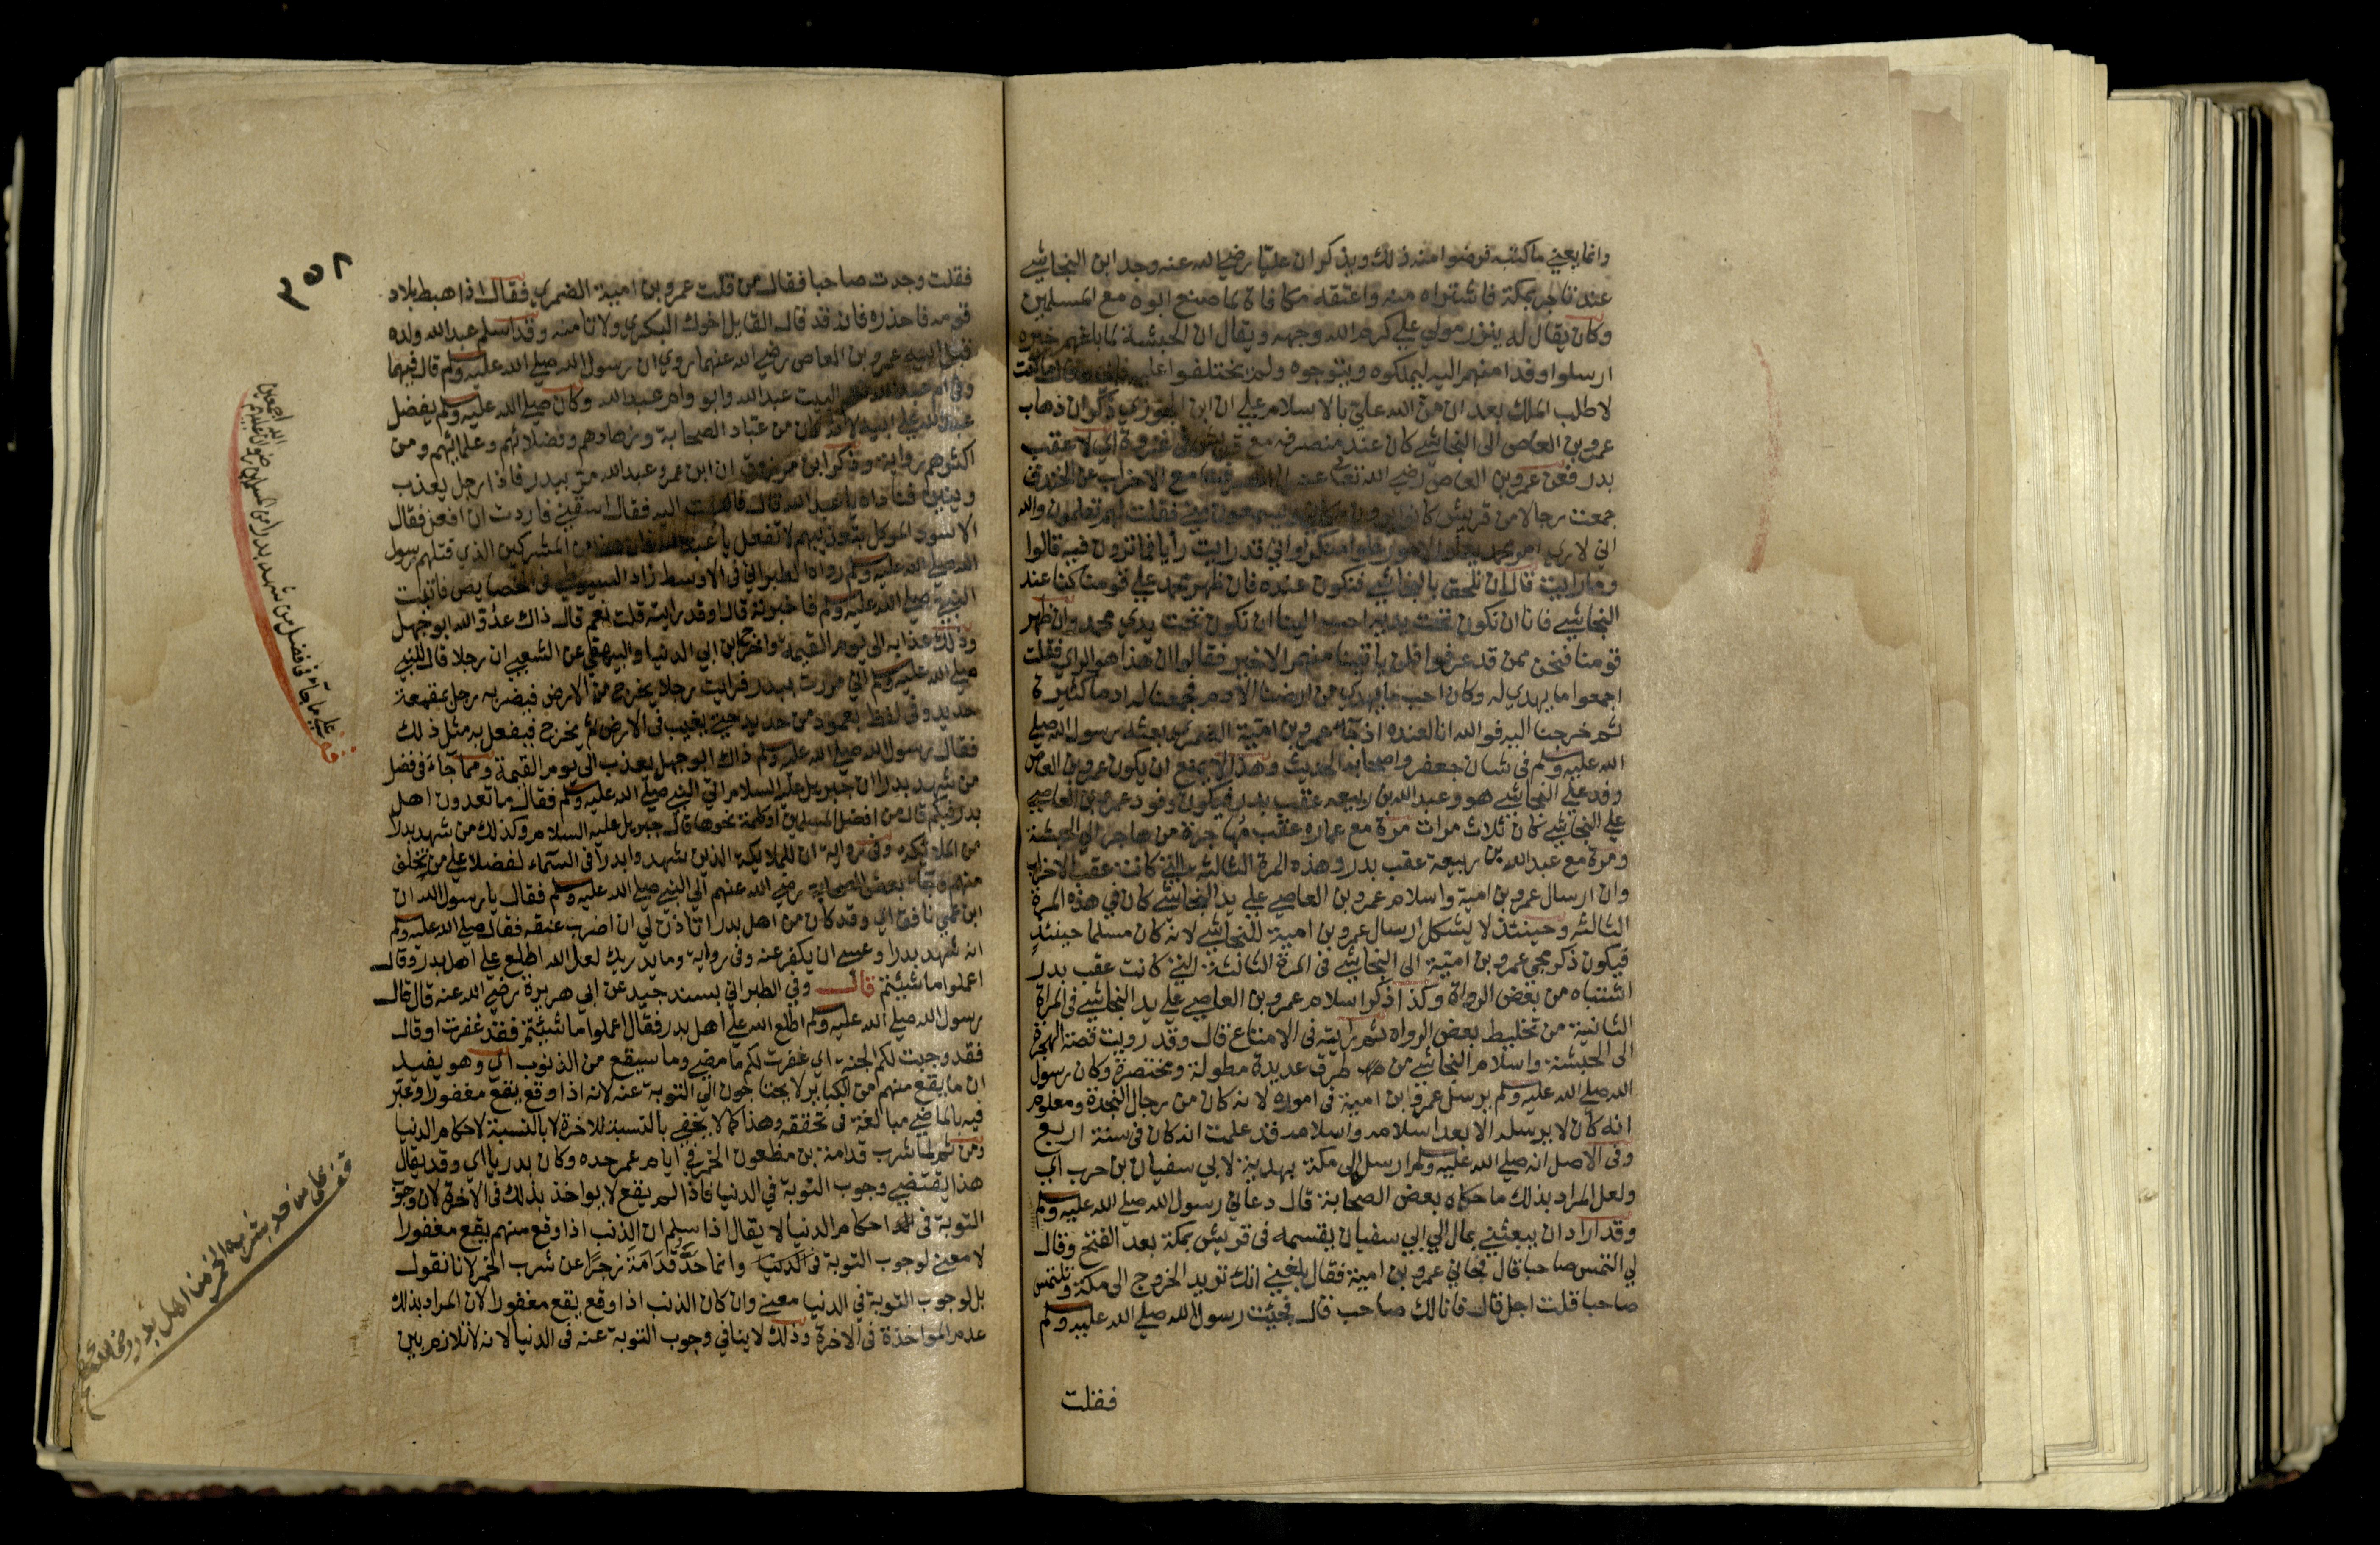 وانما يعني ما كتبه فرضوا منه ذلك ويذكر ان عليا رضي الله عنه وجد ابن النجاشي
عند تاجر بمكة فاشتراه منه واعتقه مكافاة لما صنع ابوه مع المسلمين
وكان يقال له نيزر مولى علي كرم الله وجهه ويقال ان الحبشة لما بلغهم خبره
ارسلوا وفدا منهم اليه ليملكوه ويتوجوه ولم يختلفوا عليه فابى وقال ما كنت
لاطلب الملك بعد ان من الله علي بالاسلام على ان ابن الجوزي ذكر ان ذهاب
عمرو بن العاص الى النجاشي كان عند منصرفه مع قريش في غزوة اي لا عقب
بدر فعن عمرو بن العاص رضي الله تعالى عنه مع الاحزاب عن الخندق
جمعت رجالا من قريش كانوا يرون مكاني ويسمعون مني فقلت لهم تعلمون والله
اني لا رى امر محمد يعلو الامور علوا منكرا واني قد رايت رأيا فما ترون فيه قالوا
وما رايت قال ان نلحق بالنجاشي فنكون عنده فان ظهر محمد على قومنا كنا عند
النجاشي فانا ان نكون تحت يديه احب الينا ان نكون تحت يدي محمد وان ظهر
قومنا فنحن ممن قد عرفوا فلن ياتينا منهم الا خير فقالوا ان هذا هو الراي فقلت
اجمعوا ما يهدي له وكان احب ما يهدى من ارضنا الادم فجمعنا له ادما كثيرة
ثم خرجنا اليه فوالله انا لعنده اذ جاء عمرو بن امية الضمري بعثه رسول الله صلى
الله عليه وسلم في شان جعفر واصحابه الحديث وهذا لا يمنع ان يكون عمرو بن العاص
وفد على النجاشي هو وعبد الله بن ربيعه عقب بدر فيكون وفود عمرو بن العاصي
على النجاشي كان ثلاث مرات مرة مع عماره عقب مهاجرة من هاجر الى الحبشة
ومرة مع عبد الله بن ربيعة عقب بدر وهذه المرة الثالثه التي كانت عقب الاحزاب
وان ارسال عمرو بن امية واسلام عمرو بن العاصي على يد النجاشي كان في هذه المرة
الثالثه وحينئذ لا يشكل ارسال عمرو بن امية للنجاشي لانه كان مسلما حينئذ
فيكون ذكر مجي عمرو بن امية الى النجاشي في المرة الثانية التي كانت عقب بدر
اشتباه من بعض الرواة وكذا ذكر اسلام عمرو بن العاصي على يد النجاشي في المرة
الثانية من تخليط بعض الرواه ثم رايته في الامتاع قال وقد رويت قصة الهجرة
الى الحبشة واسلام النجاشي من طرق عديدة مطولة ومختصرة وكان رسول
الله صلى الله عليه وسلم يرسل عمرو ابن امية في اموره لانه كان من رجال النجدة ومعلوم
انه كان لا يرسله الا بعد اسلامه واسلامه قد علمت انه كان في سنة اربع
وفي الاصل انه صلى الله عليه وسلم ارسل الى مكة بهدية لابي سفيان بن حرب اي
ولعل المراد بذلك ما حكاه بعض الصحابة قال دعاني رسول الله صلى الله عليه وسلم
وقد اراد ان يبعثني بمال الى ابي سفيان يقسمه في قريش بمكة بعد الفتح وقال
لي التمس صاحبا قال فجاني عمرو بن امية فقال بلغني انك تريد الخروج الى مكة وتلتمس
صاحبا قلت اجل قال فانا لك صاحب قال فجيت رسول الله صلى الله عليه وسلم
فقلت
٣٥٨
فقلت وجدت صاحبا فقال من قلت عمرو بن امية الضمري فقال اذا هبط بلاد
قومه فاحذره فانه قد قال القايل اخوك البكري ولا تامنه وقد اسلم عبد الله ولده
قبل ابيه عمرو بن العاص رضي الله عنهما روي ان رسول الله صلى الله عليه وسلم قال فيهما
وفي ام عبد الله نعم البيت عبد الله وابو وام عبد الله وكان صلى الله عليه وسلم يفضل
عبد الله على ابيه لانه كان من عباد الصحابة وزهادهم وفضلائهم وعلمائهم ومن
اكثرهم رواية وذكر ابن مرزوق ان ابن عمر وعبد الله مر ببدر فاذا رجل يعذب
ويئين فناداه يا عبد الله قال فالتفت اليه فقال اسقني فاردت ان افعل فقال
الاسود الموكل بتعذيبهم لا تفعل يا عبد الله فان هذا من المشركين الذي قتلهم رسول
الله صلى الله عليه وسلم رواه الطبراني في الاوسط زاد السيوطي في الخصايص فاتيت
النبي صلى الله عليه وسلم فاخبرته قال اوقد رايته قلت نعم قال ذاك عدو الله ابو جهل
وذلك عذابه الى يوم القيمة واخرج ابن ابي الدنيا والبيهقي عن الشعبي ان رجلا قال للنبي
صلى الله عليه وسلم اني مررت ببدر فرايت رجلا يخرج من الارض فيضربه رجل بمقمعة
حديد وفي لفظ بعمود من حديد حتى يغيب في الارض ثم يخرج فيفعل به مثل ذلك
فقال رسول الله صلى الله عليه وسلم ذاك ابو جهل يعذب الى يوم القيمة ومما جاء في فضل
من شهد بدرا ان جبريل عليه السلام اتى النبي صلى الله عليه وسلم فقال ما تعدون اهل
بدر فيكم قال من افضل المسلمين او كلمة نحوها قال جبريل عليه السلام وكذلك من شهد بدرا
من الملائكه وفي رواية ان للملايكة الذين شهدوا بدرا في السماء لفضلا على من تخلف
منهم وجاء بعض الصحابه رضي الله عنهم الى النبي صلى الله عليه وسلم فقال يا رسول الله ان
ابن عمي نافق اي وقد كان من اهل بدر اتاذن لي ان اضرب عنقه فقال صلى الله عليه وسلم
انه شهد بدرا وعسى ان يكفر عنه وفي رواية وما يدريك لعل الله اطلع على اهل بدر وقال
اعملوا ما شئتم قال وفي الطبراني بسند جيد عن ابي هريرة رضي الله عنه قال قال
رسول الله صلى الله عليه وسلم اطلع الله على اهل بدر فقال اعملوا ما شئتم فقد غفرت او قال
فقد وجبت لكم الجنه اي غفرت لكم ما مضى وما سيقع من الذنوب اي وهو يفيد
ان ما يقع منهم من الكباير لا يحتاجون الى التوبة عنه لانه اذا وقع يقع مغفورا وعبر
فيه بالماضي مبالغة في تحققه وهذا كما لا يخفى بالنسبة للاخرة لا بالنسبة لاحكام الدنيا
ومن ثم لما شرب قدامة بن مظعون الخمر في ايام عمر حده وكان بدريا اي وقد يقال
هذا يقتضي وجوب التوبة في الدنيا فاذا لم يقع لا يواخذ بذلك في الاخرة لان وجوب
التوبة في احكام الدنيا لا يقال اذا سلم ان الذنب اذا وقع منهم يقع مغفورا
لا معنى لوجوب التوبة في الدنيا وانما حد قدامة زجرا عن شرب الخمر لانا نقول
بل لوجوب التوبة في الدنيا معنى وان كان الذنب اذا وقع يقع مغفورا لان المراد بذلك
عدم المواخذة في الاخرة وذلك لا ينافي وجوب التوبة عنه في الدنيا لانه لا تلازم بين
قف على ما جاء في فضل من شهد بدرا من المسلمين رضوان الله عليهم اجمعين
قف على من حد بشربه الخمر من اهل بدر رضي الله عنهم